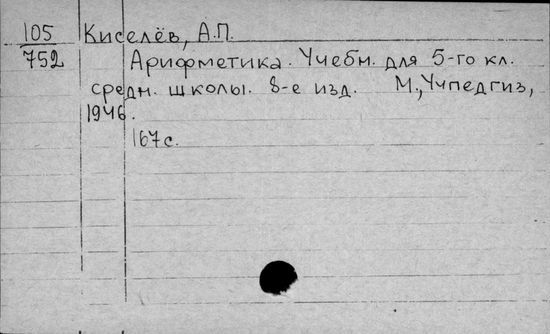 105 Киселёв, А.П.
752 Арифметика. Учебн. для 5-го кл.
средн. школы. 8-е изд. М., Учпедгиз,
1946.
167 с.